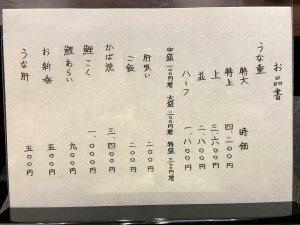 お品書
うな重
特大 時価
特上 四、二〇〇円
上 三、六〇〇円
並 二、八〇〇円
ハーフ 一、八〇〇円
中盛 一〇〇円増 大盛 二〇〇円増 特盛 三〇〇円増
肝吸い 二〇〇円
ご飯 二〇〇円
かば焼 三、四〇〇円
鯉こく 一、〇〇〇円
鯉あらい 九〇〇円
お新香 五〇〇円
うな肝 五〇〇円